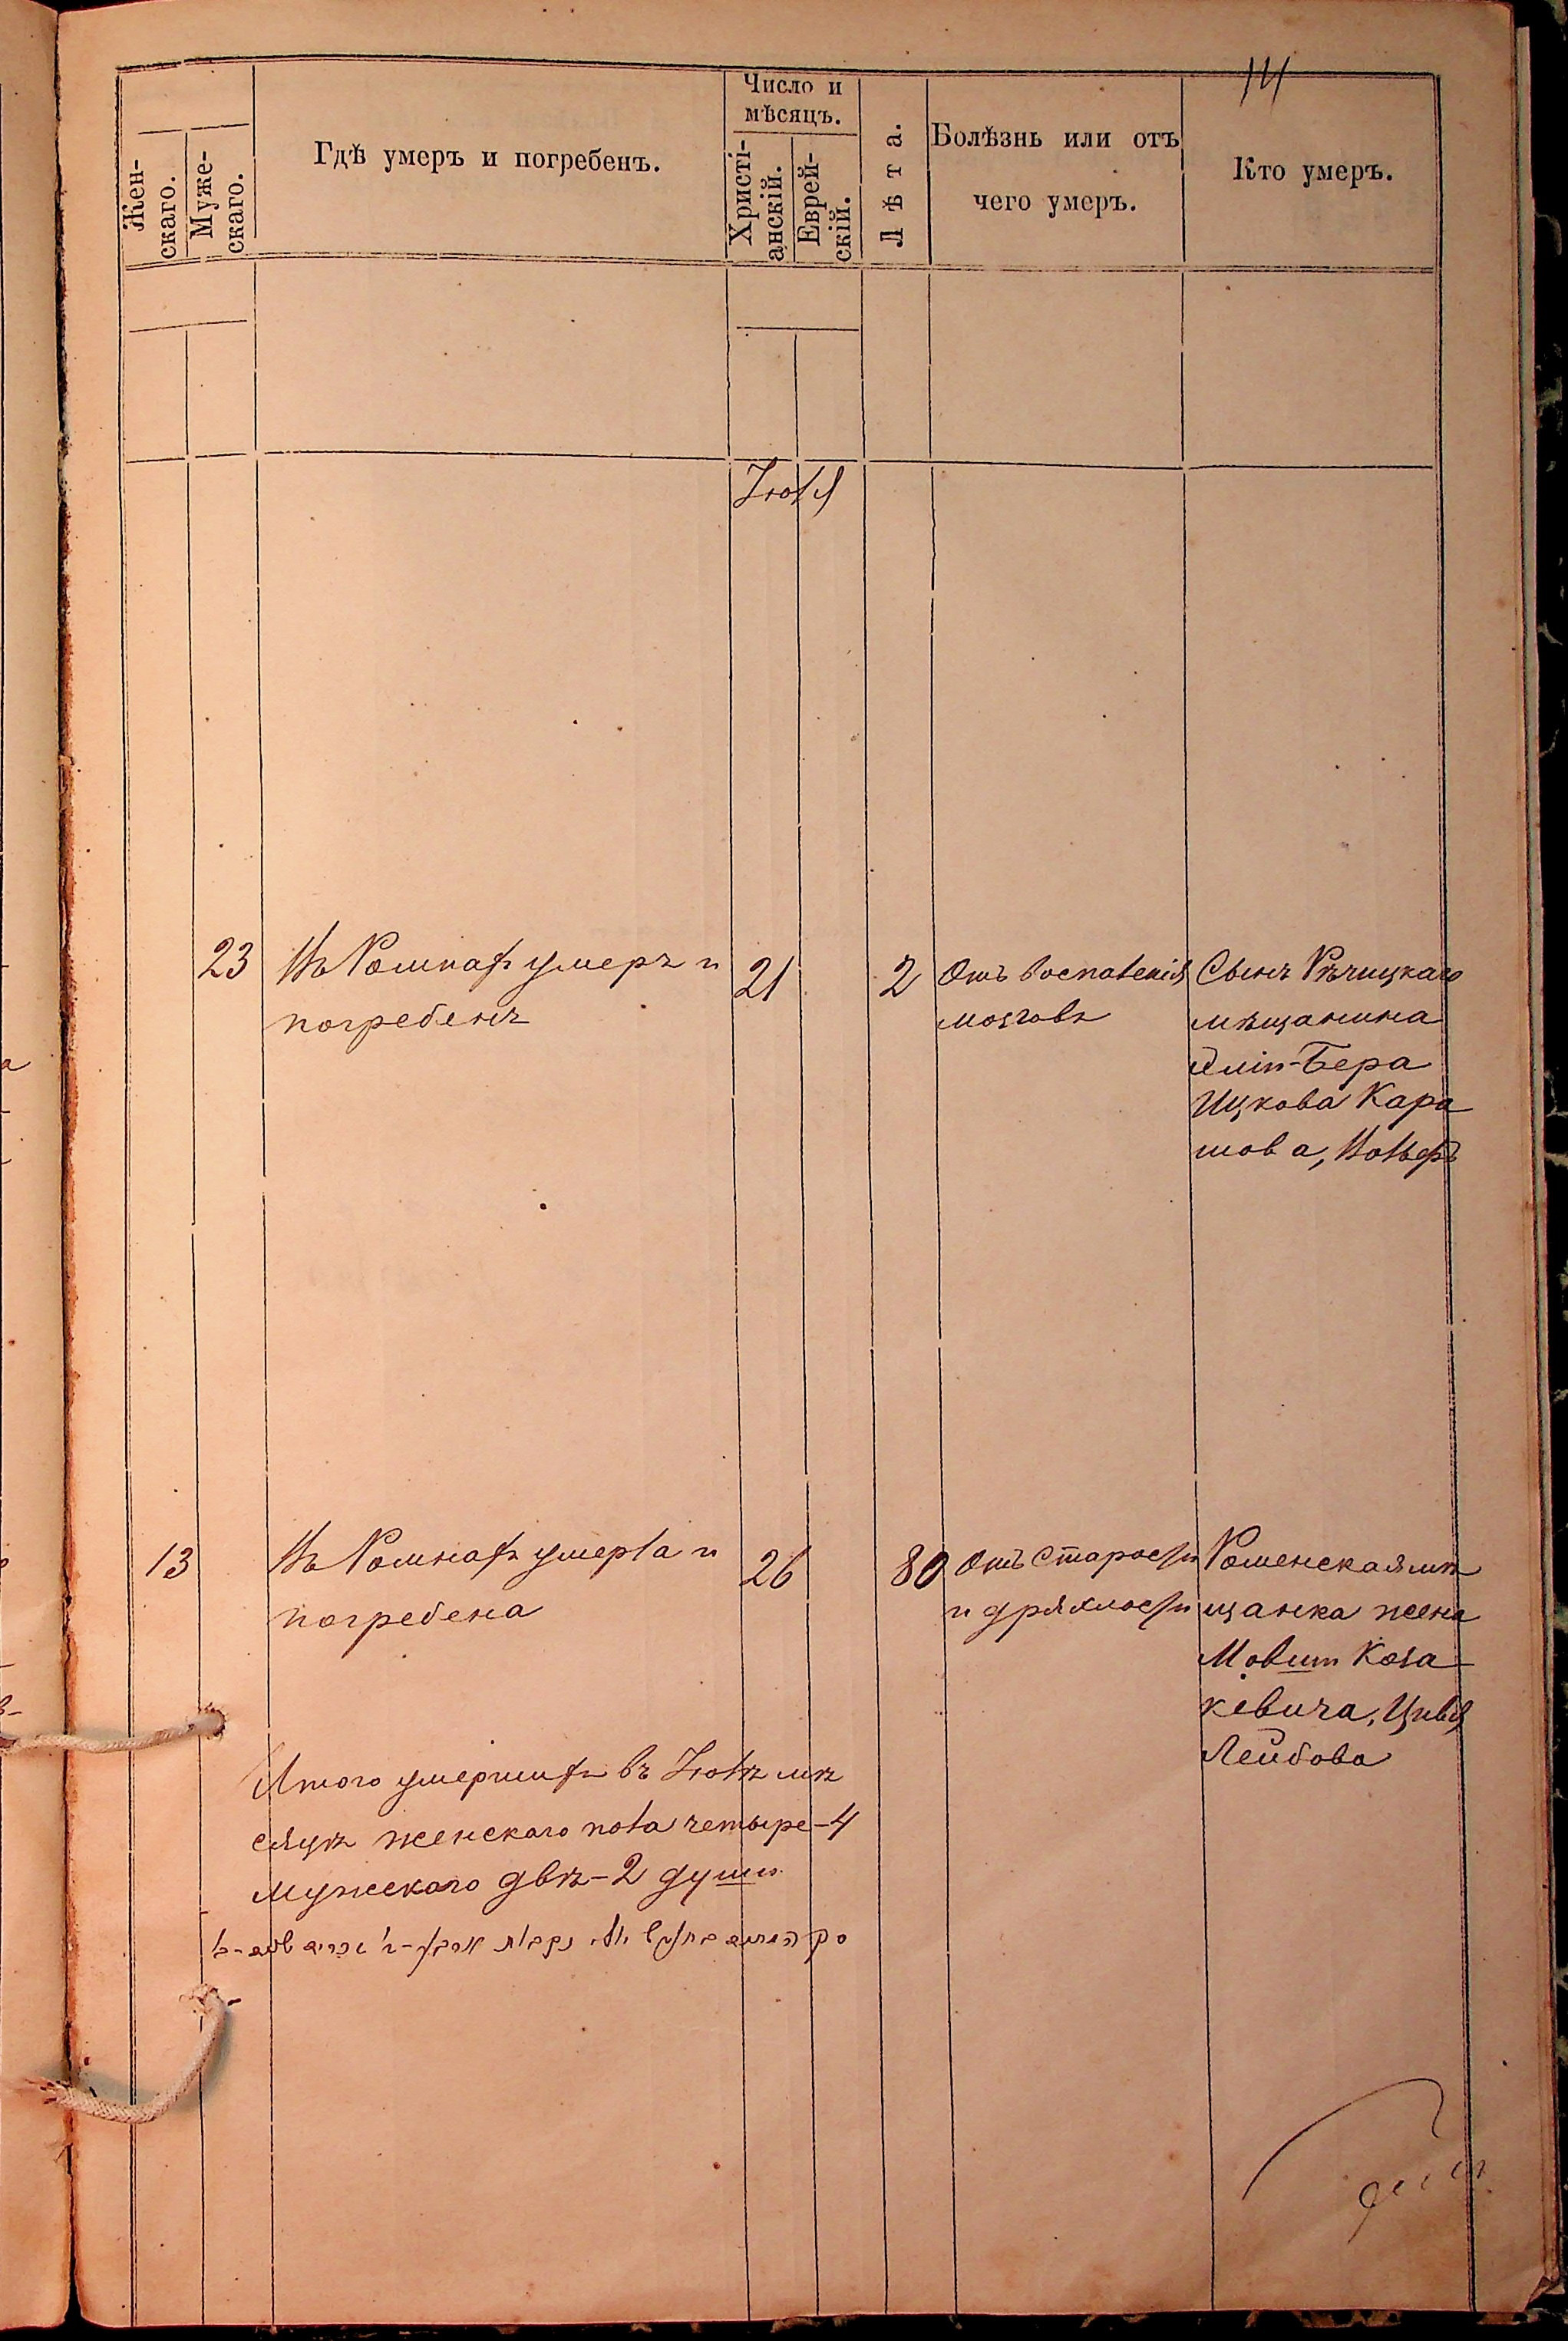 14
Жен-
скаго.
Муже-
скаго.
Гдѣ умеръ и погребенъ.
Число и
мѣсяцъ.
Христі-
анскій.
Еврей-
скій.
Лѣта.
Болѣзнь или отъ
чего умеръ.
Кто умеръ.
Іюля
23
Въ Ромнахъ умеръ и
погребенъ
21
2
Отъ воспаленія
мозговъ
Сынъ Рѣчицкаго
мѣщанина
Ицкова Кара
шова, Вольфъ
13
Въ Ромнахъ умерла и
погребена
26
80
Отъ старости
и дряхлости
Роменская мѣ
щанка жена
Мовши Коза
кевича, Цивья
Лейбова
Итого умершихъ въ Іюлѣ мѣ
сяцѣ женскаго пола четыре-4
мужескаго двѣ-2 души